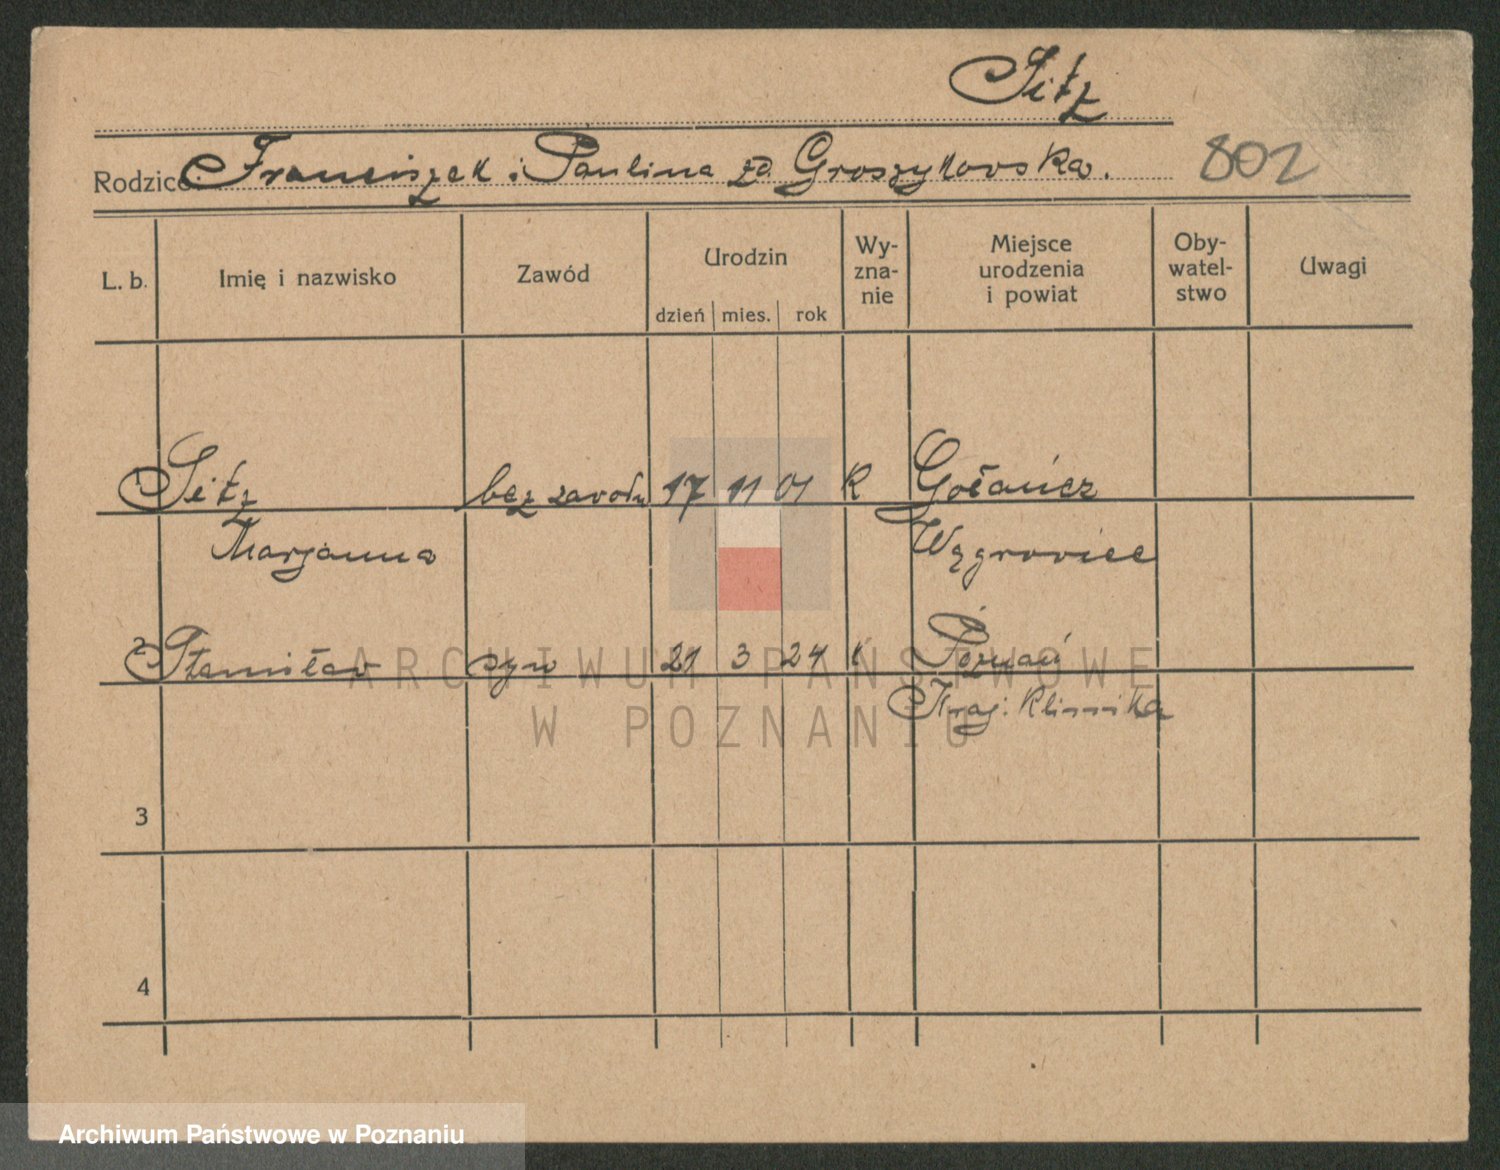 Sitz
Rodzice: Franciszek i Paulina zd. Groszykowska.
802
L. b.
Imię i nazwisko
Zawód
Urodzin
dzień mies. rok
Wy-
zna-
nie
Miejsce
urodzenia
i powiat
Oby-
watel-
stwo
Uwagi
1 Sitz bez zavodu 17 11 01 K Gołańcz
Marjanna Wągroviec
2 Stanisłav syn 21 3 24 K Poznań
Kraj. Klinnika
3
4
ARCHIWUM PAŃSTWOWE
W POZNANIU
Archiwum Państwowe w Poznaniu